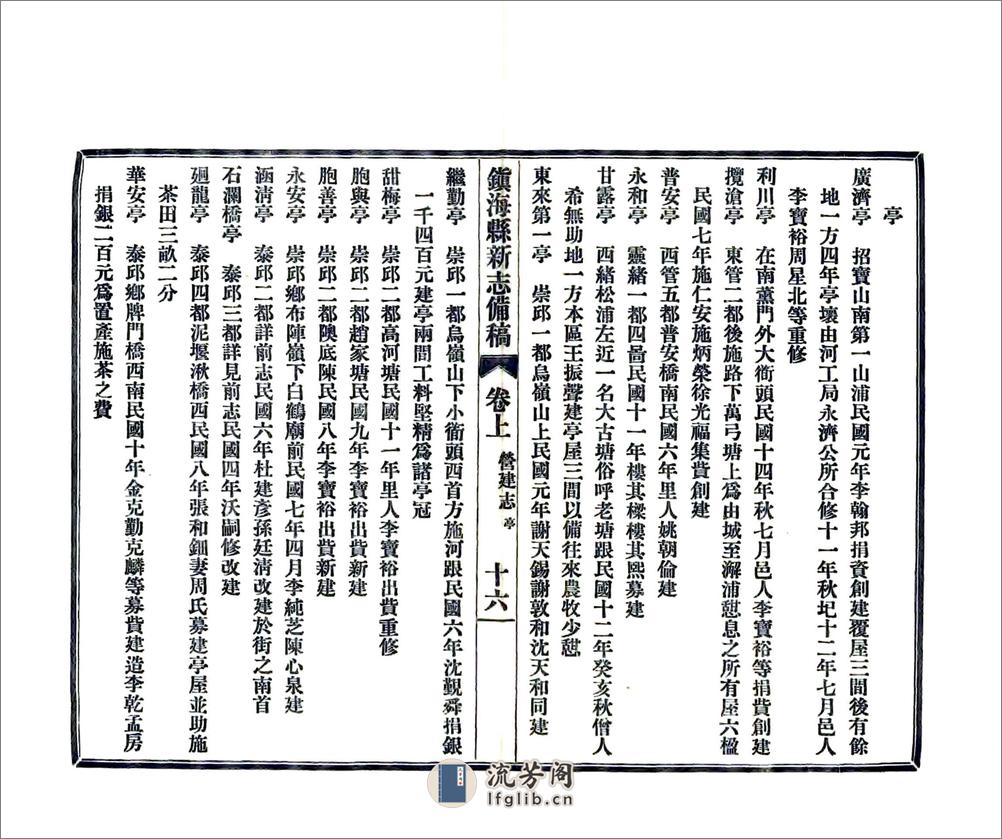 亭
廣濟亭 招寶山南第一山浦民國元年李翰邦捐資創建覆屋三間後有餘
地一方四年亭壞由河工局永濟公所合修十一年秋圮十二年七月邑人
李寶裕周星北等重修
利川亭 在南薰門外大衜頭民國十四年秋七月邑人李寶裕等捐貲創建
攬滄亭 東管二都後施路下萬弓塘上爲由城至澥浦憇息之所有屋六楹
民國七年施仁安施炳榮徐光福集貲創建
普安亭 西管五都普安橋南民國六年里人姚朝倫建
永和亭 靈緒一都四啚民國十一年樓其樑樓其熙募建
甘露亭 西緒松浦左近一名大古塘俗呼老塘跟民國十二年癸亥秋僧人
希無助地一方本區王振聲建亭屋三間以備往來農牧少憇
東來第一亭 崇邱一都烏嶺山上民國元年謝天錫謝敦和沈天和同建
鎭海縣新志備稿 卷上 營建志 亭 十六
繼勤亭 崇邱一都烏嶺山下小衜頭西首方施河跟民國六年沈覲舜捐銀
一千四百元建亭兩間工料堅精爲諸亭冠
甜梅亭 崇邱二都高河塘民國十一年里人李寶裕出貲重修
胞與亭 崇邱二都趙家塘民國九年李寶裕出貲新建
胞善亭 崇邱二都隩底陳民國八年李寶裕出貲新建
永安亭 崇邱鄉布陣嶺下白鶴廟前民國七年四月李純芝陳心泉建
涵淸亭 泰邱二都詳前志民國六年杜建彥孫廷淸改建於街之南首
石瀾橋亭 泰邱三都詳見前志民國四年沃嗣修改建
廻龍亭 泰邱四都泥堰湫橋西民國八年張和鈿妻周氏募建亭屋並助施
茶田三畝二分
華安亭 泰邱鄉牌門橋西南民國十年金克勤克麟等募貲建造李乾孟房
捐銀二百元爲置產施茶之費
流芳阁
lfglib.cn